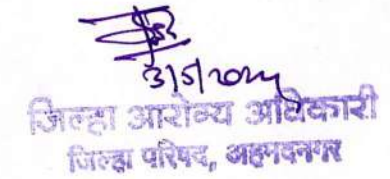 3/5/2024
जिल्हा आरोग्य अधिकारी
जिल्हा परिषद, अहमदनगर